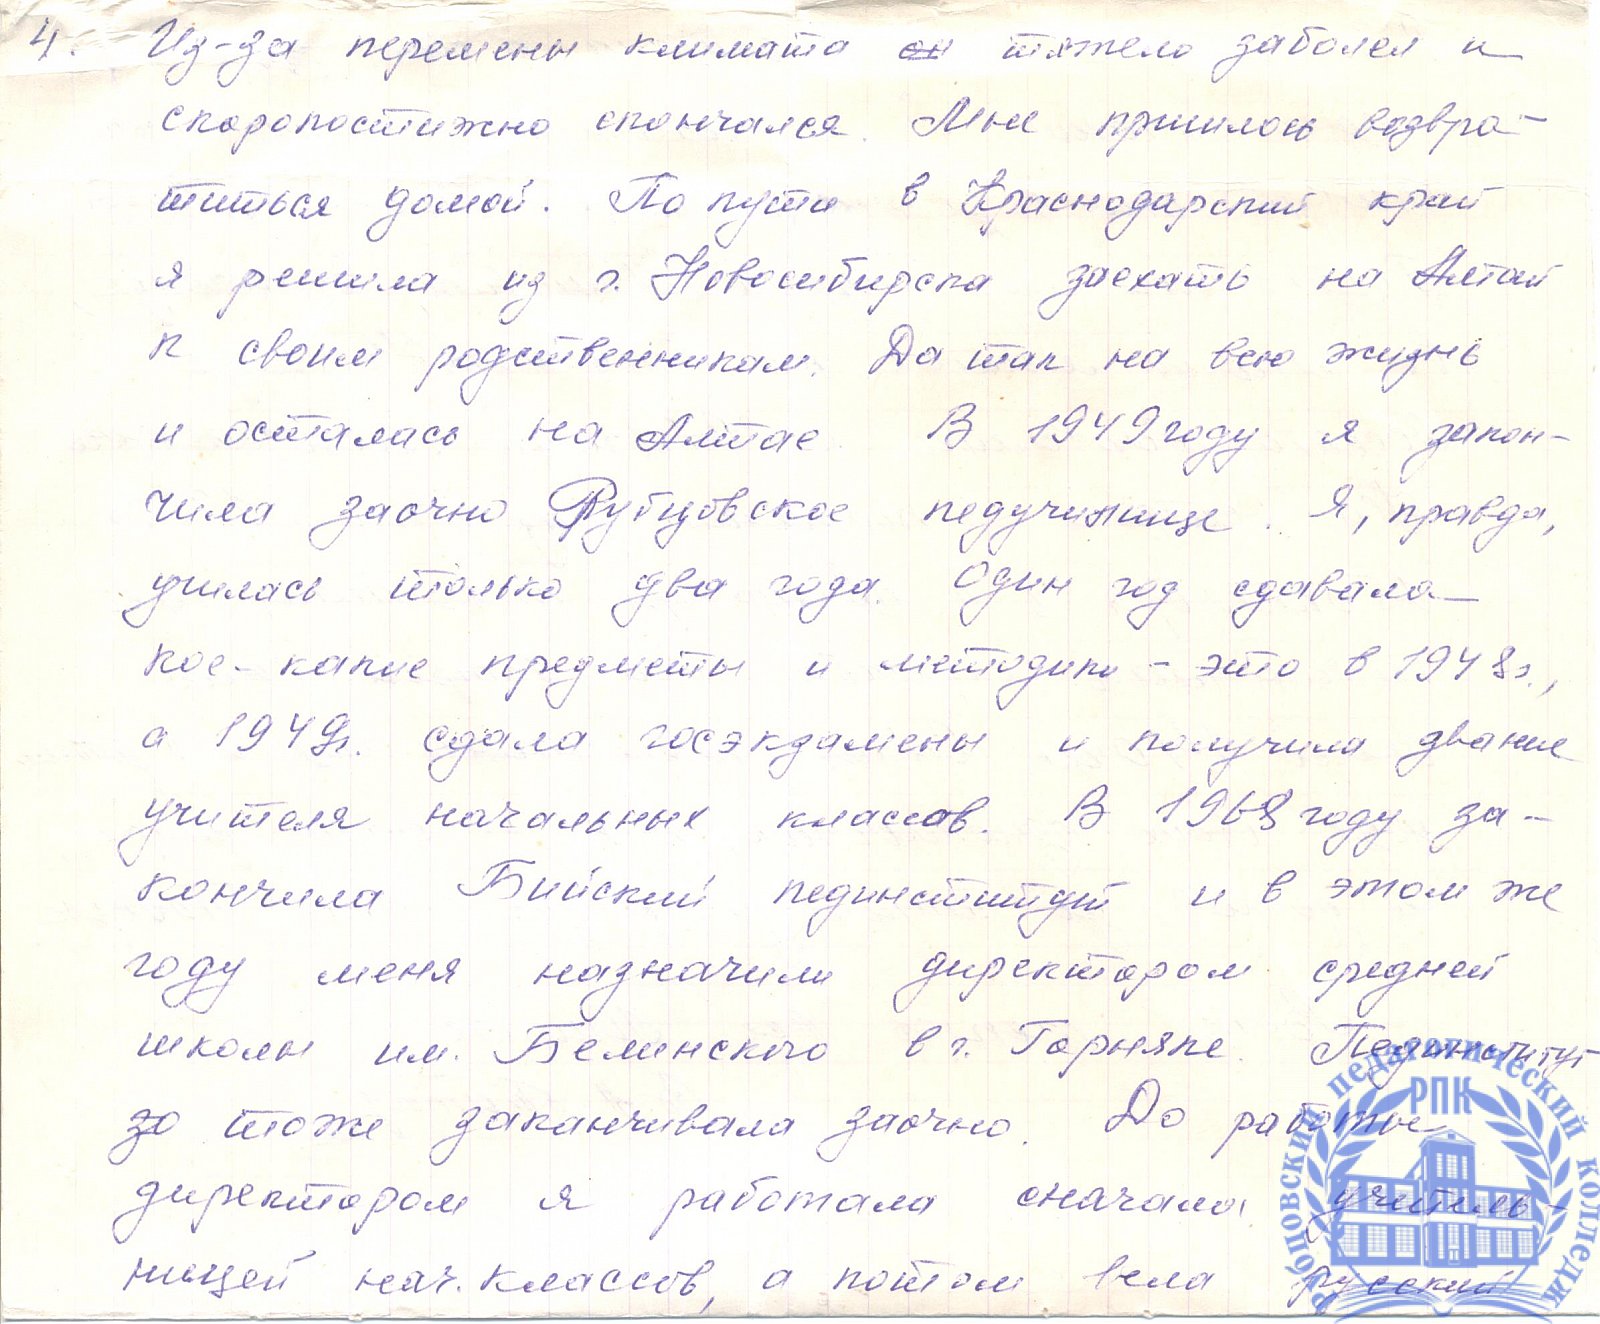 4. Из-за перемены климата он тяжело заболел и
скоропостижно скончался. Мне пришлось возвра-
титься домой. По пути в Краснодарский край
я решила из г. Новосибирска заехать на Алтай
к своим родственникам. Да так на всю жизнь
и осталась на Алтае. В 1949 году я закон-
чила заочно Рубцовское педучилище. Я, правда,
училась только два года. Один год сдавала
кое-какие предметы и методики - это в 1948г.,
а 1949г. сдала госэкзамены и получила звание
учителя начальных классов. В 1968 году за-
кончила Бийский пединститут и в этом же
году меня назначили директором средней
школы им. Белинского в г. Горняке. Пединститут
я тоже заканчивала заочно. До работы
директором я работала сначала учитель-
ницей нач. классов, а потом вела русский
РУБЦОВСКИЙ ПЕДАГОГИЧЕСКИЙ КОЛЛЕДЖ
РПК